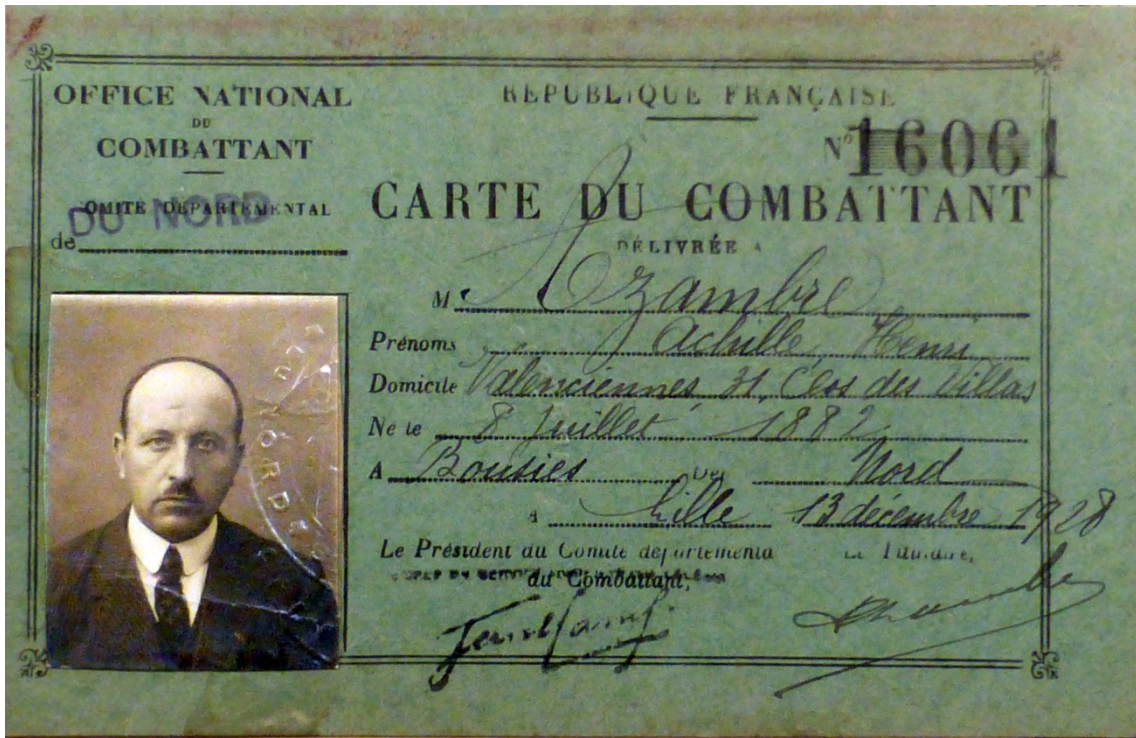 OFFICE NATIONAL
DU
COMBATTANT
COMITÉ DÉPARTEMENTAL
de DU NORD
RÉPUBLIQUE FRANÇAISE
N° 16061
CARTE DU COMBATTANT
DÉLIVRÉE A
M. Azambre
Prénoms Achille, Henri
Domicile Valenciennes, 31, Clos des Villas
Né le 8 Juillet 1882
A Bousies Dep Nord
A Lille 13 décembre 1928
Le Président du Comité départemental
du Combattant,
Le Titulaire,
NORD